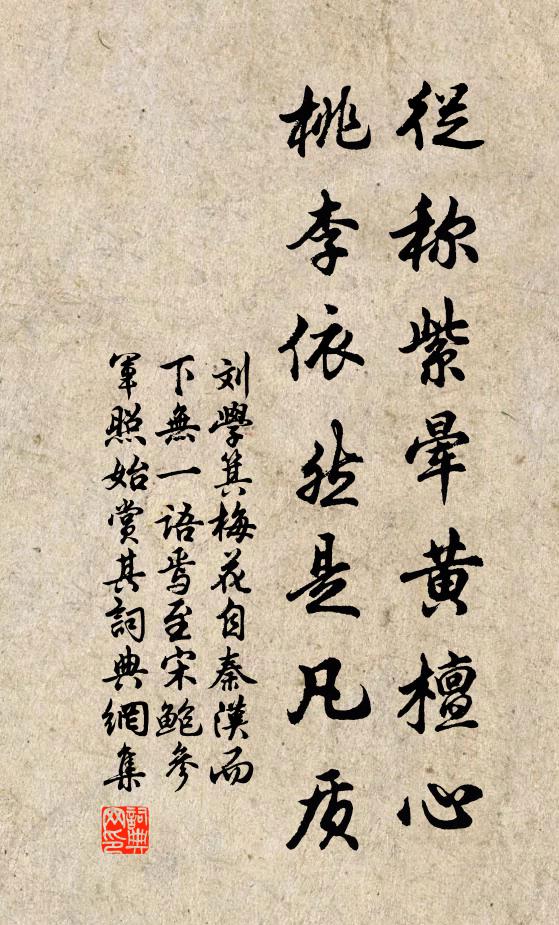 從称紫暈黄檀心
桃李依然是凡质
刘學箕梅花自秦漢而
下無一语焉至宋鲍參
軍照始赏其詞典網集
詞典
网印